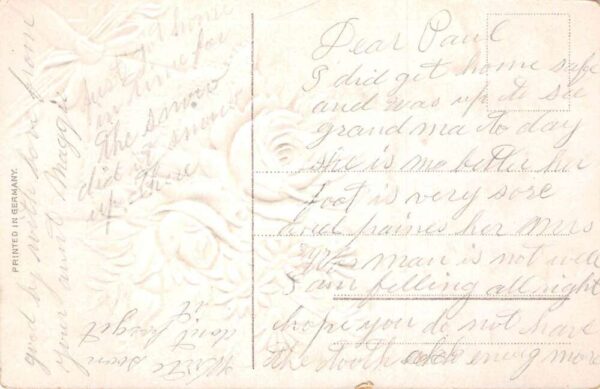 Dear Paul
I did get home safe
and was up to see
grand ma to day
she is no better her
foot is very sore
paines her mrs
man is not well
I am felling all right
hope you do not have
the tooth ack enny more
just got home
in time for
the snow
did it snow
up there
good by with love from
your aunt Maggie
Write soon
dont forget
it
PRINTED IN GERMANY.